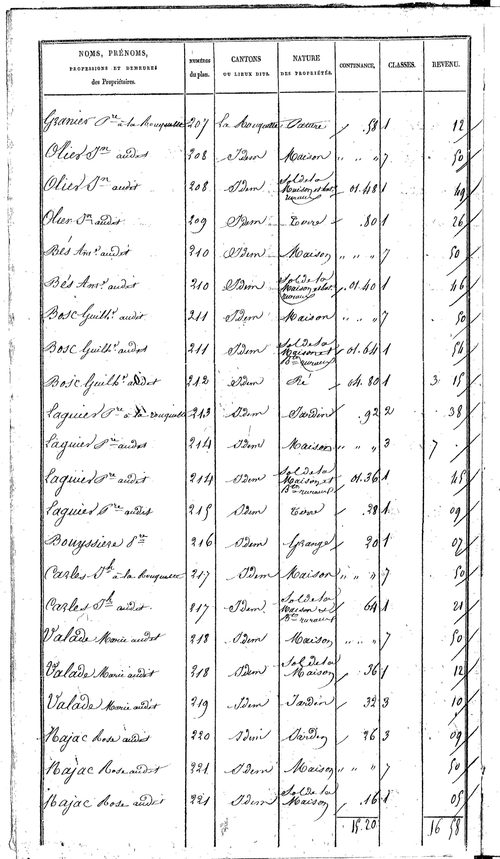 NOMS, PRÉNOMS, PROFESSIONS ET DEMEURES des Propriétaires. NUMÉROS du plan. CANTONS OU LIEUX DITS. NATURE DES PROPRIÉTÉS. CONTENANCE. CLASSES. REVENU.
Granier Pre à la Rouquette 207 La Rouquette Pature 58 1 12
Olier Jn audit 208 Idem Maison " " " 7 50
Olier Jn audit 208 Idem Sol de la Maison et bat. ruraux 01.48 1 49
Olier Jn audit 209 Idem Terre 80 1 26
Bés Ant. audit 210 Idem Maison " " " 7 50
Bés Ant. audit 210 Idem Sol de la Maison et bat. ruraux 01.40 1 46
Bosc Guilh. audit 211 Idem Maison " " " 7 50
Bosc Guilh. audit 211 Idem Sol de la Maison et Bten ruraux 01.64 1 54
Bosc Guilh. audit 212 Idem Pré 04.80 1 3 15
Laguier Pre à la rouquette 213 Idem Jardin 92 2 38
Laguier Pre audit 214 Idem Maison " " " 3 7 .
Laguier Pre audit 214 Idem Sol de la Maison et Bten ruraux 01.36 1 45
Laguier Pre audit 215 Idem Terre 28 1 09
Bouyssiere 216 Idem Grange 20 1 07
Carles Jh à la Rouquette 217 Idem Maison " " " 7 50
Carles Jh audit 217 Idem Sol de la Maison et Bten ruraux 64 1 21
Valade Marie audit 218 Idem Maison " " " 7 50
Valade Marie audit 218 Idem Sol de la Maison 36 1 12
Valade Marie audit 219 Idem Jardin 32 3 10
Najac Rose audit 220 Idem Jardin 26 3 09
Najac Rose audit 221 Idem Maison " " " 7 50
Najac Rose audit 221 Idem Sol de la Maison 16 1 05
15.20 16 58